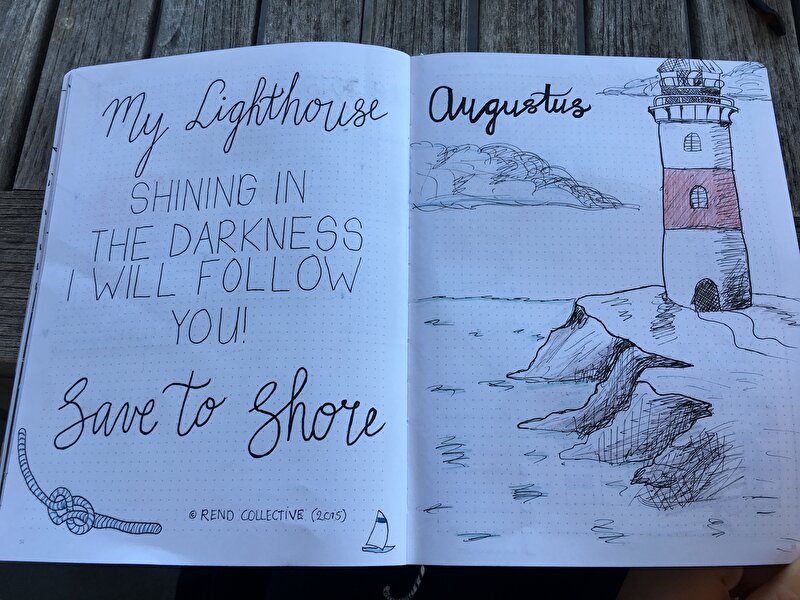 My Lighthouse
SHINING IN
THE DARKNESS
I WILL FOLLOW
YOU!
Save to Shore
© REND COLLECTIVE (2015)
Augustus